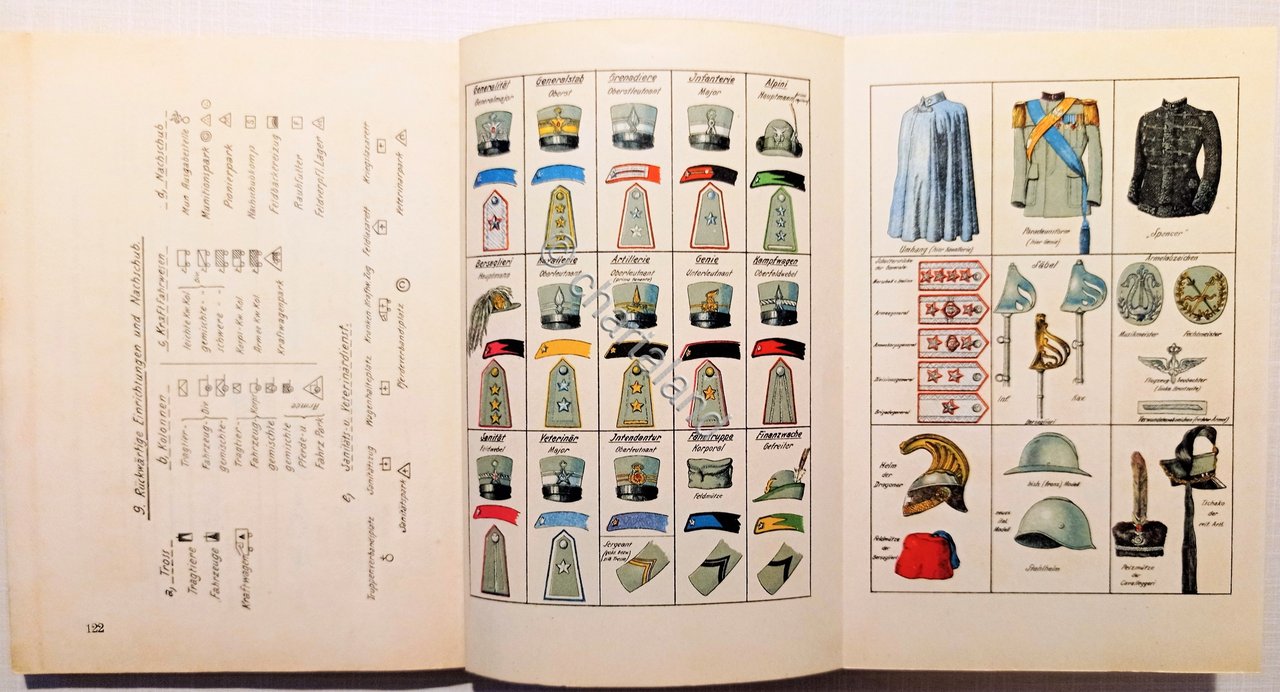 9. Rückwärtige Einrichtungen und Nachschub.
a, Tross
Tragtiere
Fahrzeuge
Kraftwagen
b. Kolonnen
Tragtier-
Fahrzeug-
gemischte-
Tragtier-
Fahrzeug-
gemischte
gemischte
Pferde-u
Fahrz. Park
Div.
Korps
Armee
c. Kraftfahrwesen
leichte Kw. Kol
gemischte -
schwere -
Kraftwagenpark
d. Nachschub
Mun Ausgabestelle
Munitionspark
Pionierpark
Nachschubkomp
Feldbäckereizug
Rauhfutter
e, Sanitäts u. Veterinärdienst.
Truppenverbandplatz
Sanitätszug
Wagenhalteplatz
Kranken kraftwg
Feldlazarett
Kriegslazarett
Sanitätspark
Pferdeverbandplatz
Veterinärpark
122
Generalität
Generalmajor
Generalstab
Oberst
Grenadiere
Oberstleutnant
Infanterie
Major
Alpini
Hauptmann
Bersaglieri
Hauptmann
Kavallerie
Oberleutnant
Artillerie
Oberleutnant
(primo tenente)
Genie
Unterleutnant
Kampfwagen
Oberfeldwebel
Sanität
Feldwebel
Veterinär
Major
Intendantur
Oberleutnant
Fahrtruppe
Korporal
Feldmütze
Finanzwache
Gefreiter
Sergeant
© chartaland
Umhang (hier Kavallerie)
Paradeuniform
(hier Genie)
"Spencer"
Schulterstücke
der Generale:
Marschall v. Italien
Armeegeneral
Armeekorpsgeneral
Divisionsgeneral
Brigadegeneral
Säbel
Inf.
Kav.
Bersaglieri
Armelabzeichen
Musikmeister
Fechtmeister
Flugzeug beobachter
(linke Brustseite)
Helm
der
Dragoner
Feldmütze
der
Bersaglieri
bish. (franz.) Modell
neues
ital.
Modell
Stahlhelm
Pelzmütze
der
Cavalleggeri
Tschako
der
reit. Artl.